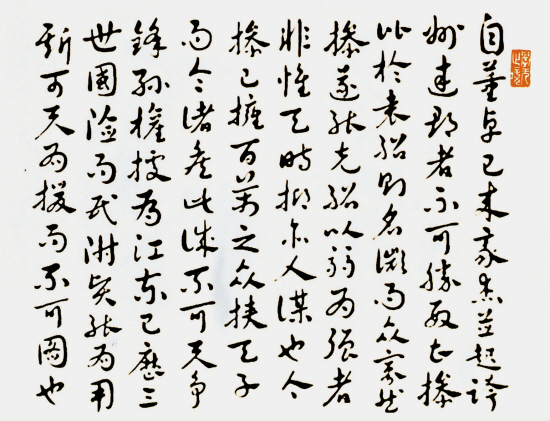 自董卓已來豪傑並起跨
州連郡者不可勝數曹操
比於袁紹則名微而眾寡然
操遂能克紹以弱為強者
非惟天時抑亦人謀也今
操已擁百萬之眾挾天子
而令諸侯此誠不可與爭
鋒孫權據有江東已歷三
世國險而民附賢能為用
斯可與為援而不可圖也